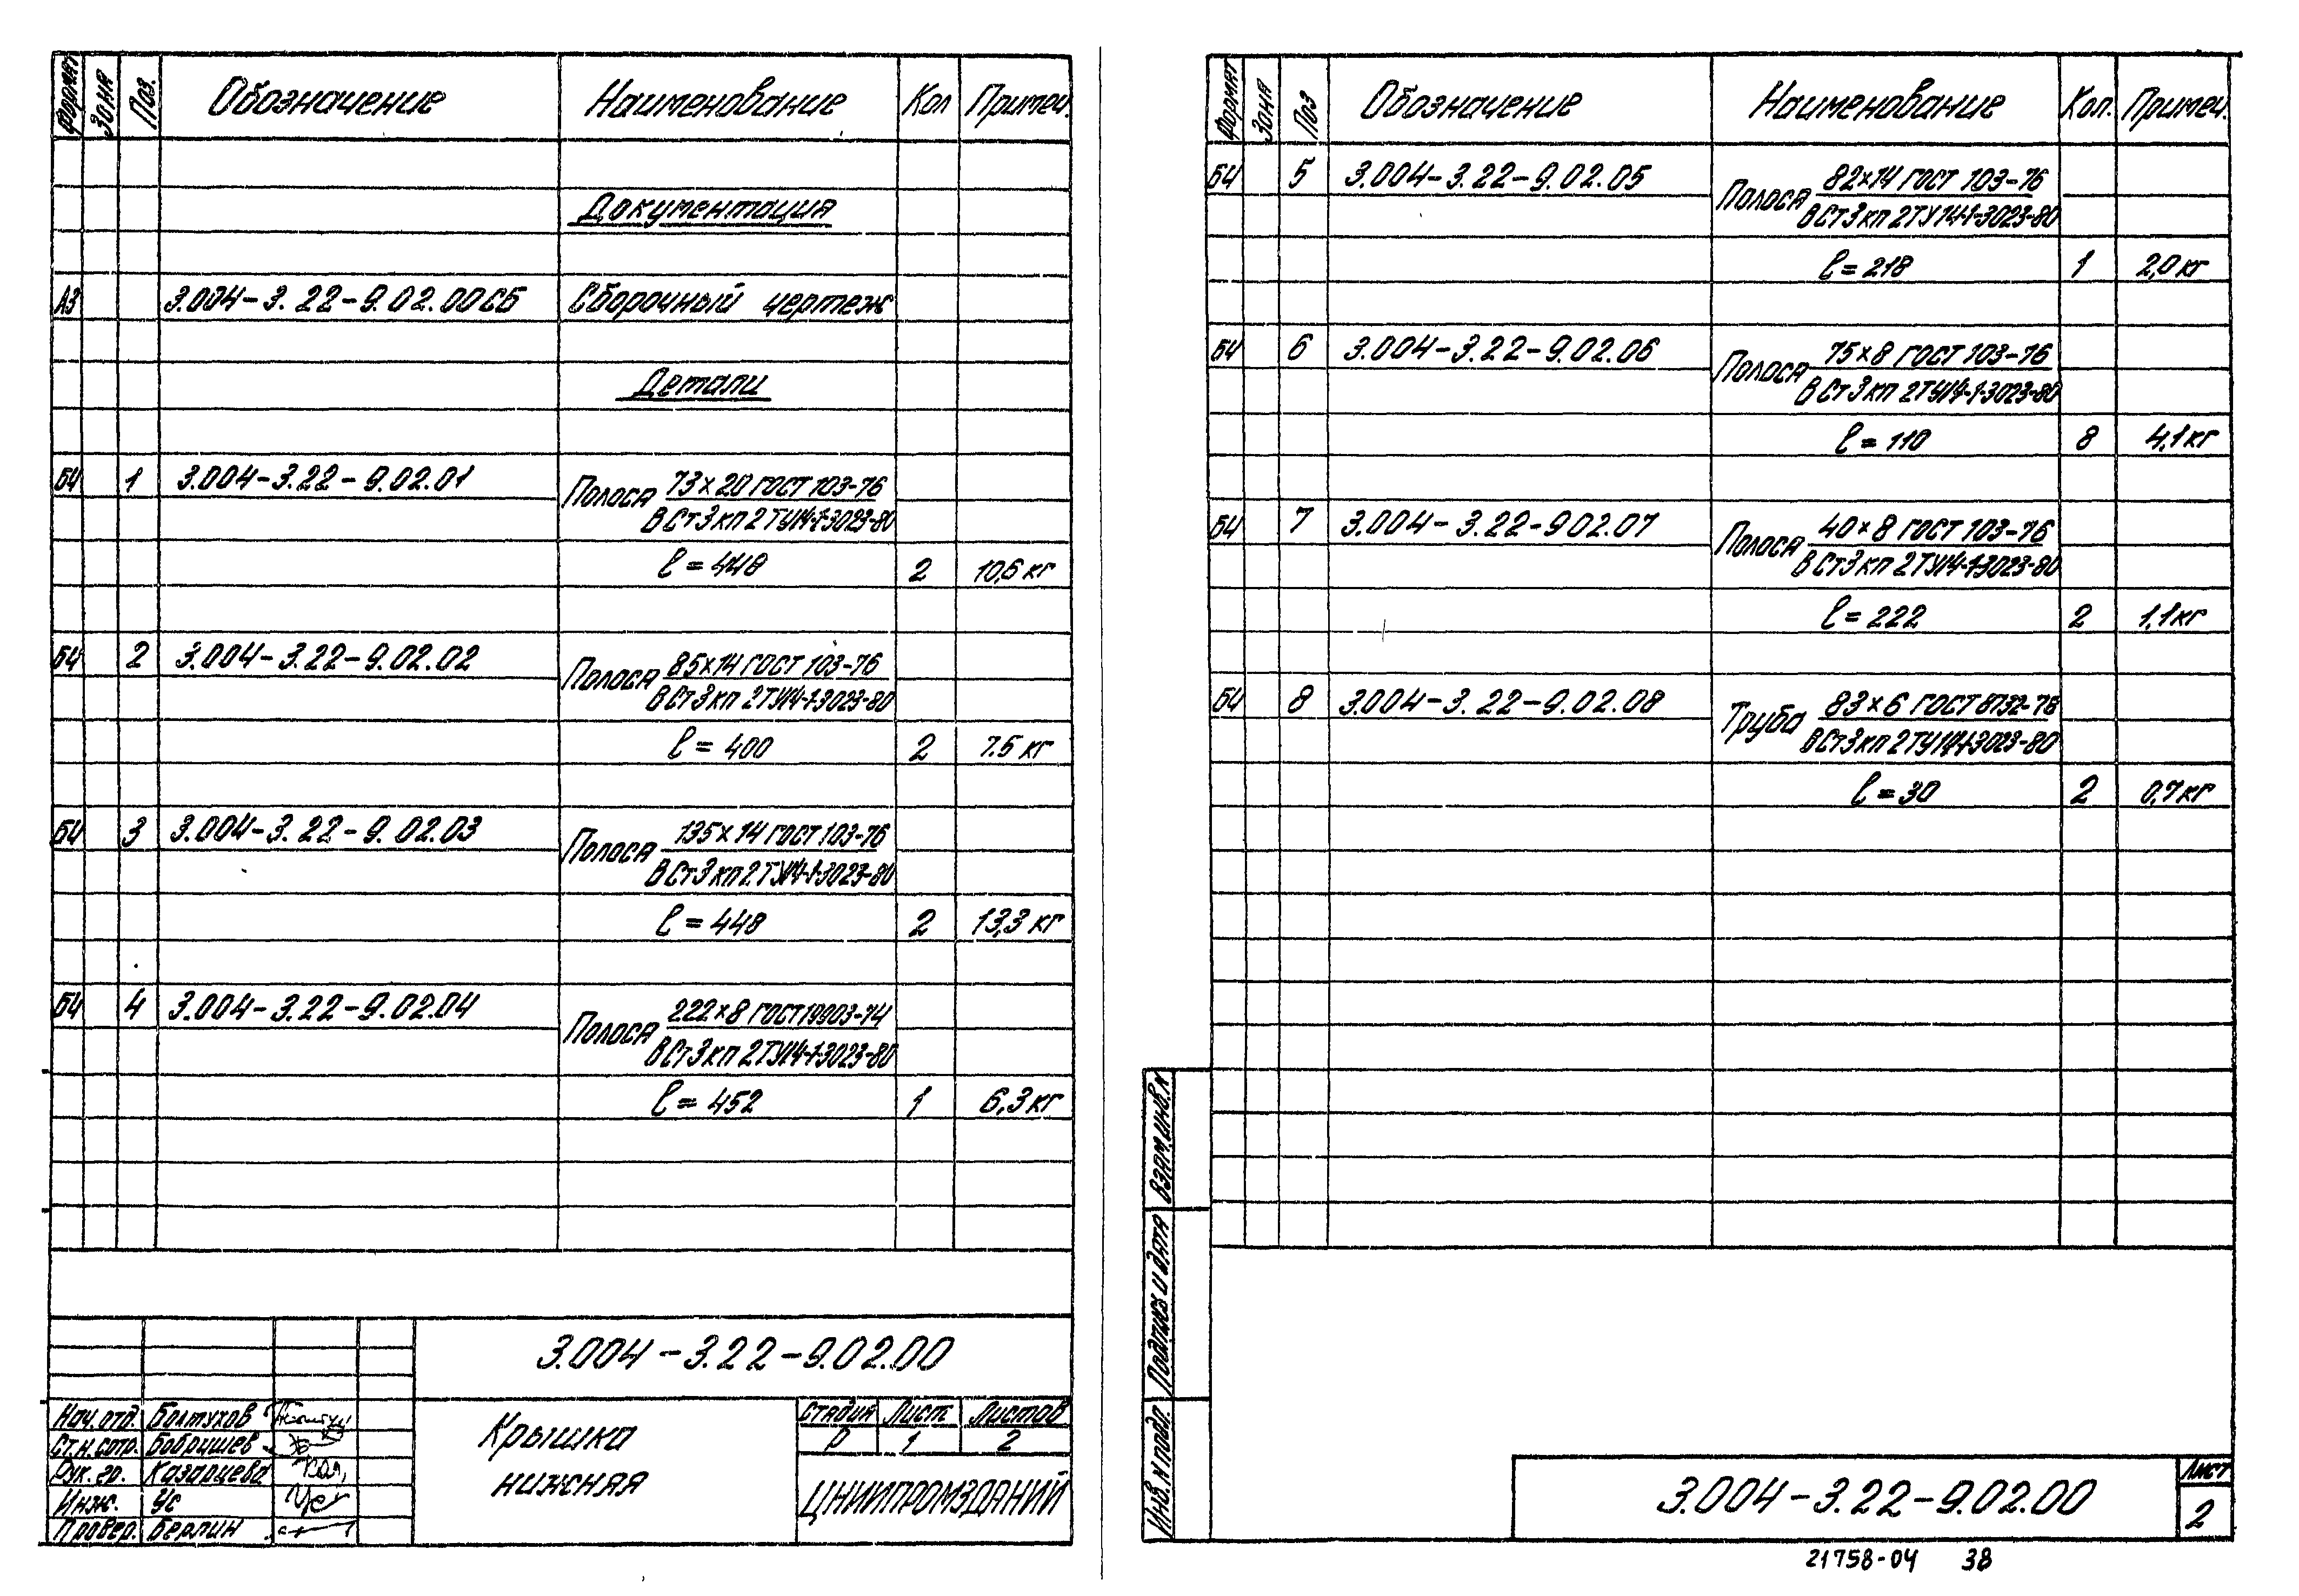 Формат Зона Поз. Обозначение Наименование Кол Примеч.
Документация
А3 3.004-3.22-9.02.00СБ Сборочный чертеж
Детали
БЧ 1 3.004-3.22-9.02.01 Полоса 73×20 ГОСТ 103-76
ВСт3кп2ТУ14-1-3023-80
ℓ=448 2 10,6 кг
БЧ 2 3.004-3.22-9.02.02 Полоса 85×14 ГОСТ 103-76
ВСт3кп2ТУ14-1-3023-80
ℓ=400 2 7.5 кг
БЧ 3 3.004-3.22-9.02.03 Полоса 135×14 ГОСТ 103-76
ВСт3кп2ТУ14-1-3023-80
ℓ=448 2 13,3 кг
БЧ 4 3.004-3.22-9.02.04 Полоса 222×8 ГОСТ 19903-74
ВСт3кп2ТУ14-1-3023-80
ℓ=452 1 6,3 кг
3.004-3.22-9.02.00
Нач.отд. Болтухов
Ст.н.сотр. Бобрышев
Рук.гр. Казарцева
Инж. Ус
Провер. Берлин
Крышка
нижняя
Стадия Лист Листов
Р 1 2
ЦНИИПРОМЗДАНИЙ
Формат Зона Поз Обозначение Наименование Кол. Примеч.
БЧ 5 3.004-3.22-9.02.05 Полоса 82×14 ГОСТ 103-76
ВСт3кп2ТУ14-1-3023-80
ℓ=218 1 2,0 кг
БЧ 6 3.004-3.22-9.02.06 Полоса 75×8 ГОСТ 103-76
ВСт3кп2ТУ14-1-3023-80
ℓ=110 8 4,1 кг
БЧ 7 3.004-3.22-902.07 Полоса 40×8 ГОСТ 103-76
ВСт3кп2ТУ14-1-3023-80
ℓ=222 2 1,1 кг
БЧ 8 3.004-3.22-9.02.08 Труба 83×6 ГОСТ 8732-78
ВСт3кп2ТУ14-1-3023-80
ℓ=30 2 0,7 кг
Взам.инв.N
Подпись и дата
Инв.N подл.
3.004-3.22-9.02.00
Лист
2
21758-04 38